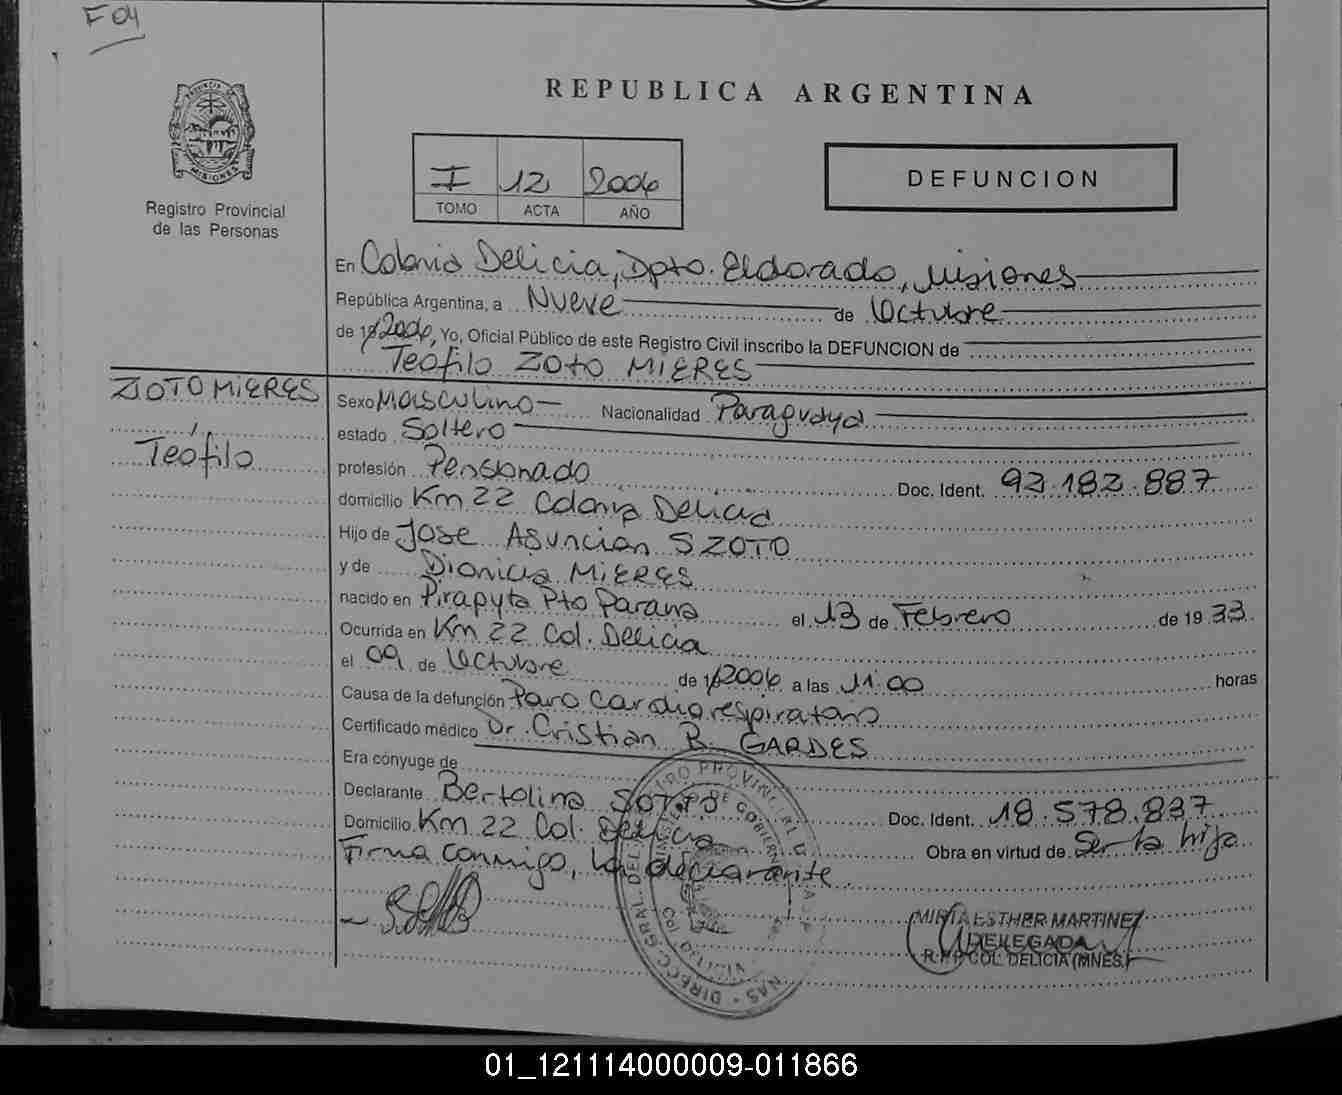 F04
REPUBLICA ARGENTINA
PROVINCIA DE
MISIONES
Registro Provincial
de las Personas
I 12 2006
TOMO ACTA AÑO
DEFUNCION
En Colonia Delicia, Dpto. Eldorado, Misiones
República Argentina, a Nueve de Octubre
de 19 2006, Yo, Oficial Público de este Registro Civil inscribo la DEFUNCION de
Teofilo ZOTO MIERES
ZOTO MIERES
Teófilo
Sexo Masculino Nacionalidad Paraguaya
estado Soltero
profesión Pensionado Doc. Ident. 92.182.887
domicilio Km 22 Colonia Delicia
Hijo de Jose Asuncion SZOTO
y de Dionicia MIERES
nacido en Pirapyta Pto Parana el 13 de Febrero de 19 33
Ocurrida en Km 22 Col. Delicia
el 09 de Octubre de 19 2006 a las 11:00 horas
Causa de la defunción Paro Cardiorespiratorio
Certificado médico Dr. Cristian B. GARDES
Era cónyuge de
Declarante Bertolina SOTTO Doc. Ident. 18.578.837
Domicilio Km 22 Col. Delicia Obra en virtud de Ser la hija
Firma conmigo, la declarante
MIRTA ESTHER MARTINEZ
DELEGADA
R.P.P. COL. DELICIA (MNES.)
01_121114000009-011866